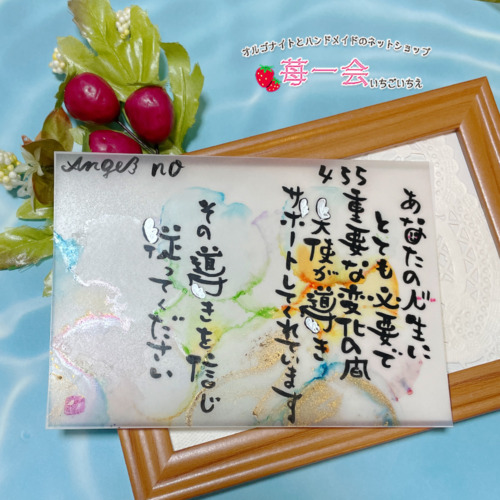 オルゴナイトとハンドメイドのネットショップ
苺一会 いちごいちえ
Angel no
455
あなたの人生に
とても必要で
重要な変化の間
天使が導き
サポートしてくれています
その導きを信じ
従ってください